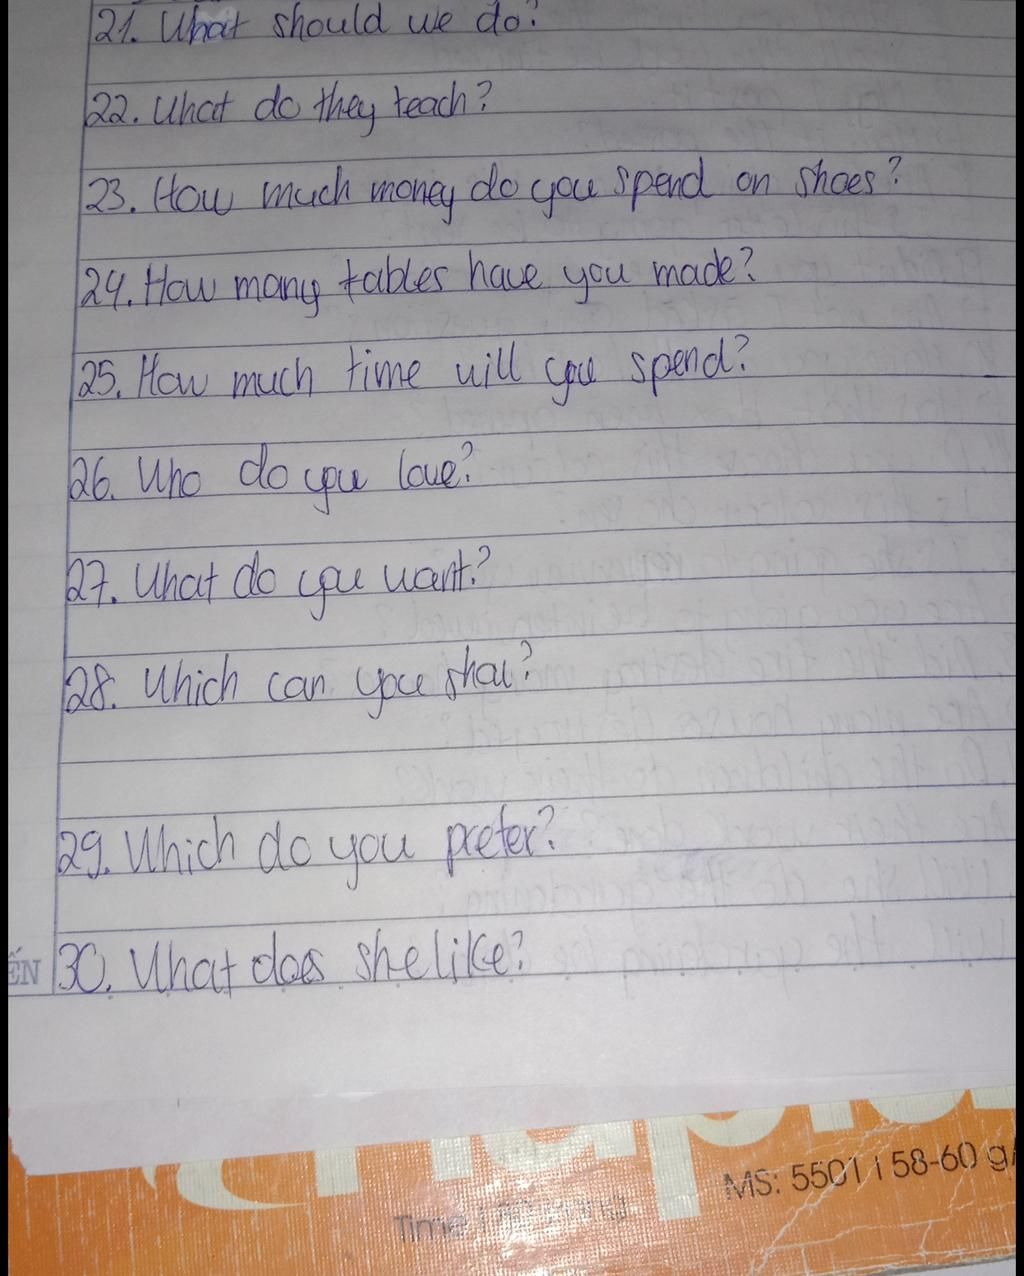 21. What should we do?
22. What do they teach?
23. How much money do you spend on shoes?
24. How many tables have you made?
25. How much time will you spend?
26. Who do you love?
27. What do you want?
28. Which can you
29. Which do you prefer?
30. What does she like?
ẾN
MS: 5501 | 58-60 g/
Time